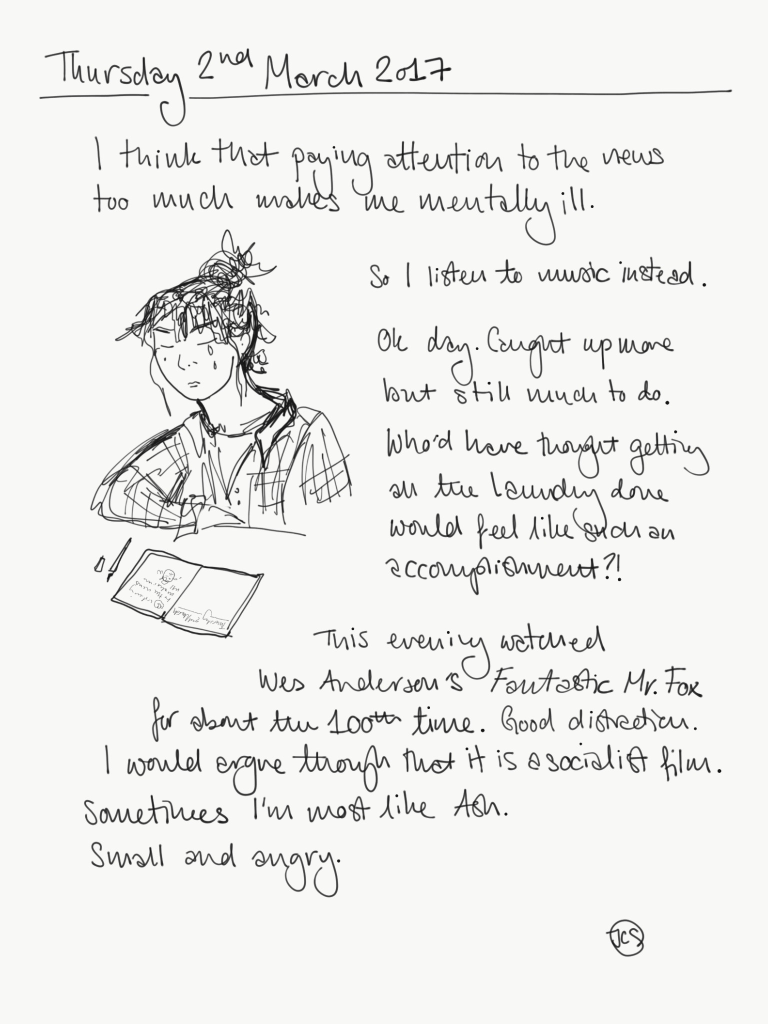 Thursday 2nd March 2017
I think that paying attention to the news
too much makes me mentally ill.
So I listen to music instead.
Ok day. Caught up more
but still much to do.
Who'd have thought getting
all the laundry done
would feel like such an
accomplishment?!
This evening watched
Wes Anderson's Fantastic Mr. Fox
for about the 100th time. Good distraction.
I would argue though that it is a socialist film.
Sometimes I'm most like Ash.
Small and angry.
JCS